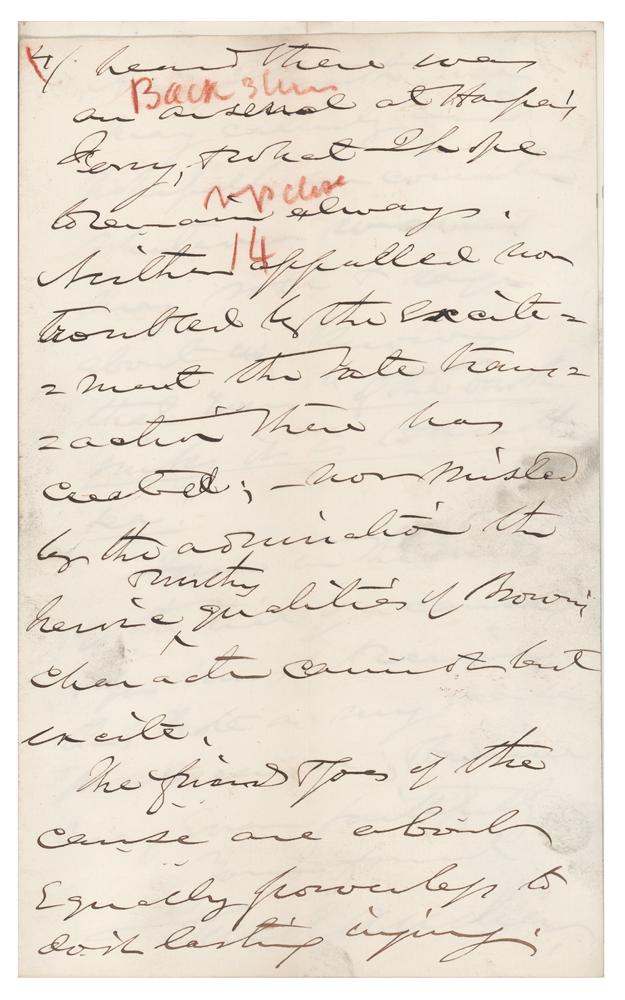 4/ heard there was
Back
an arsenal at Harper's
Ferry, & what I hope
to remain always.
14
Neither appalled nor
troubled by the Excite=
=ment the late trans=
=action there has
created; – nor misled
by the admiration the
heroic qualities of Brown's
character cannot but
excite.
The friends & foes of the
cause are about
Equally powerless to
do it lasting injury.